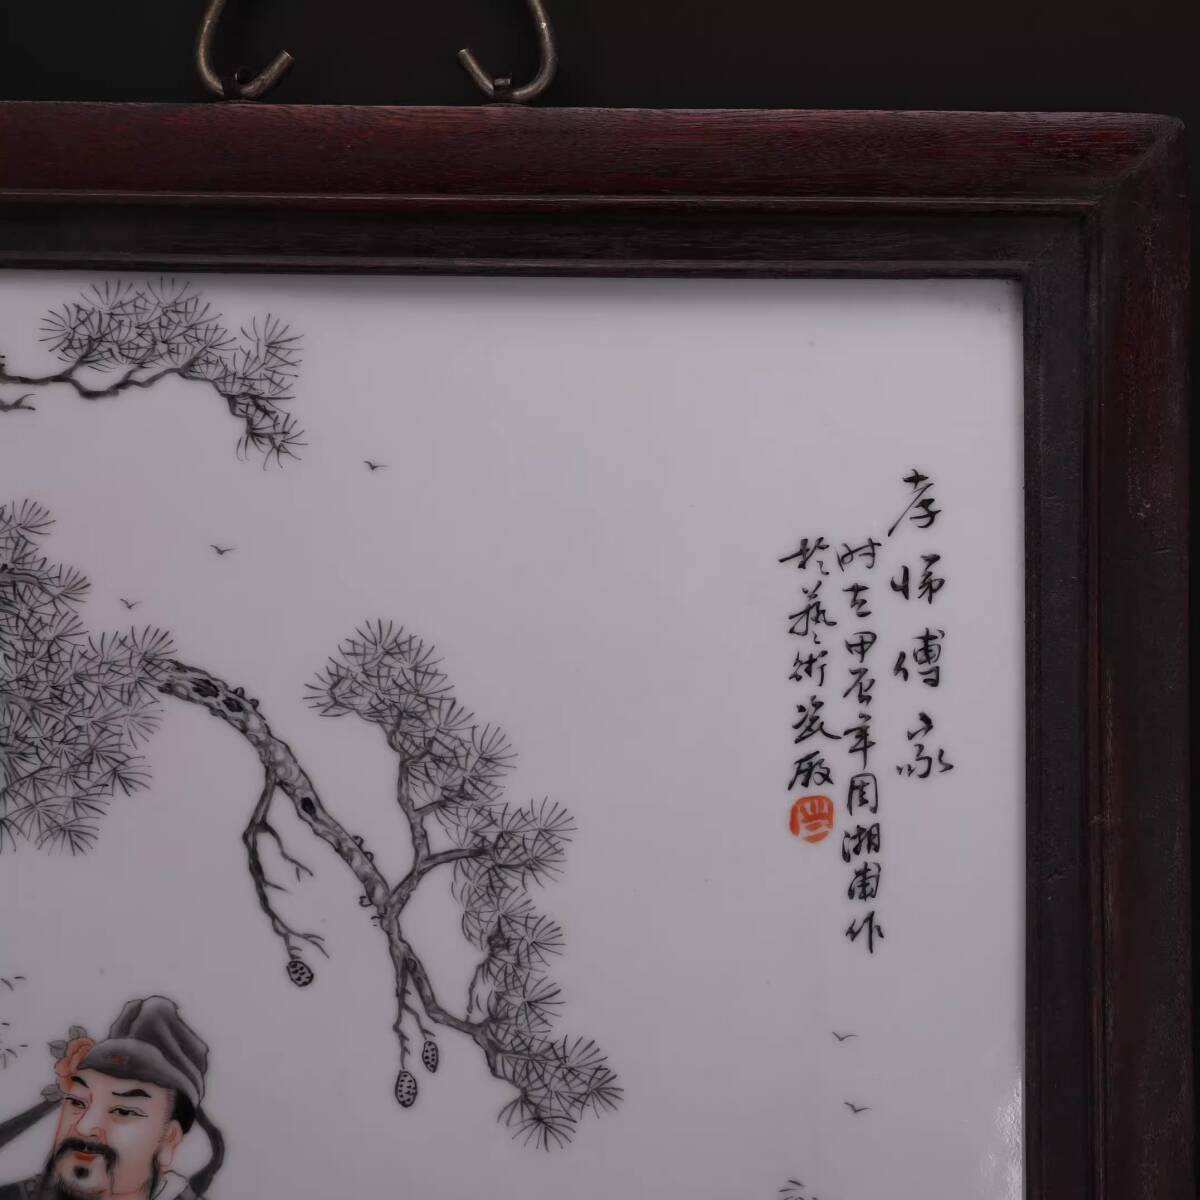 孝悌傅家
时在甲辰年周湘甫作
於藝術瓷厰